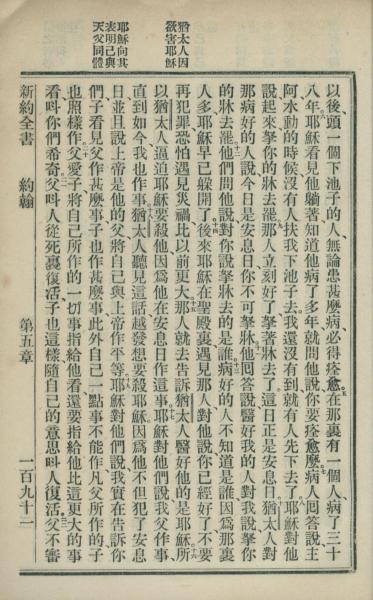 猶太人因
欲害耶穌
耶穌向其
表明己與
天父同體
以後、頭一個下池子的人、無論患甚麼病必得痊愈、在那裏有一個人、病了三十
八年、耶穌看見他躺著知道他病了多年就問他說你要痊愈麼、病人回答說主
阿水動的時候沒有人扶我下池子去我還沒有到就有人先下去了、耶穌對他
說起來拏你的牀去罷、那人立刻好了拏著牀去了這日正是安息日猶太人對
那病好的人說今日是安息日你不可拏牀、他回答說醫好我的人對我說拏你
的牀去罷、他們問他說對你說拏牀去的是誰、病好的人不知道是誰因爲那裏
人多耶穌早已躲開了、後來耶穌在聖殿裏遇見那人對他說你已經好了不要
再犯罪恐怕遇見災禍比以前更大、那人就去告訴猶太人醫好他的是耶穌、所
以猶太人逼迫耶穌要殺他因爲他在安息日作這事、耶穌對他們說我父作事
直到如今我也作事、猶太人聽見這話越發想要殺耶穌因爲他不但犯了安息
日並且說上帝是他的父將自己與上帝作平等、耶穌對他們說我實在告訴你
們子看見父作甚麼事子也作甚麼事此外自己一點事不能作凡父所作的子
也照樣作、父愛子將自己所作的一切事指給他看還要指給他比這更大的事
看叫你們希奇、父叫人從死裏復活子也這樣隨自己的意思叫人復活、父不審
新約全書
約翰
第五章
一百九十一